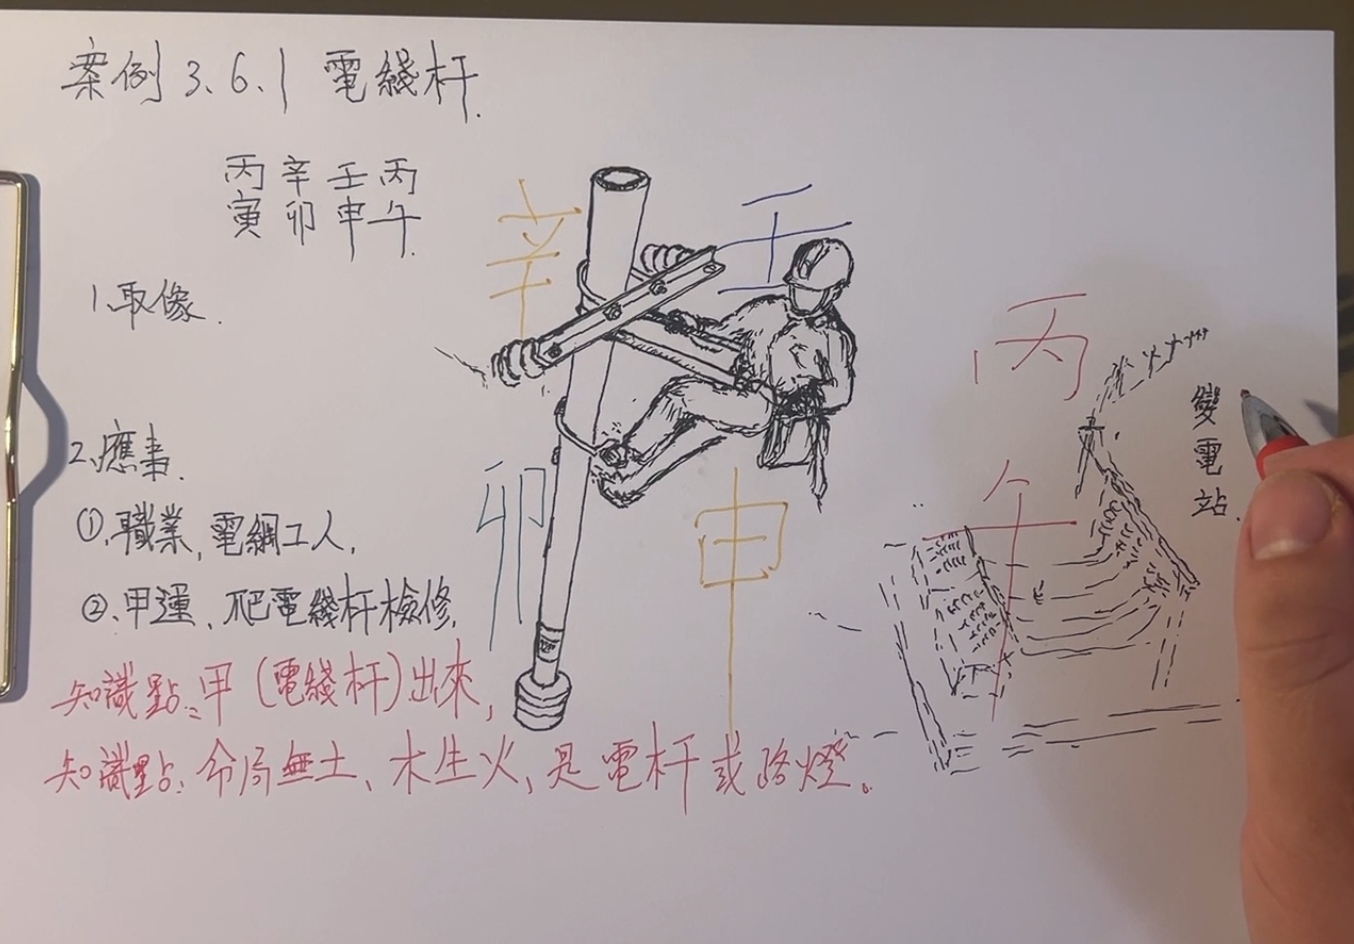 案例3.6.1 電綫杆.
丙辛壬丙
寅卯申午.
1.取像.
2.應事.
①.職業,電網工人.
②.甲運、爬電綫杆檢修.
知識點:甲(電綫杆)出來,
知識點:命局無土、木生火,是電杆或路燈。
辛
壬
卯
申
丙
午
變電站.